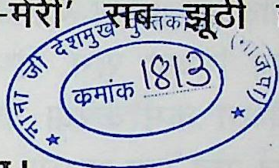 मेरी' सब झूठी
नाना जी देशमुख पुस्तका
(भाजपा)
क्रमांक 1813